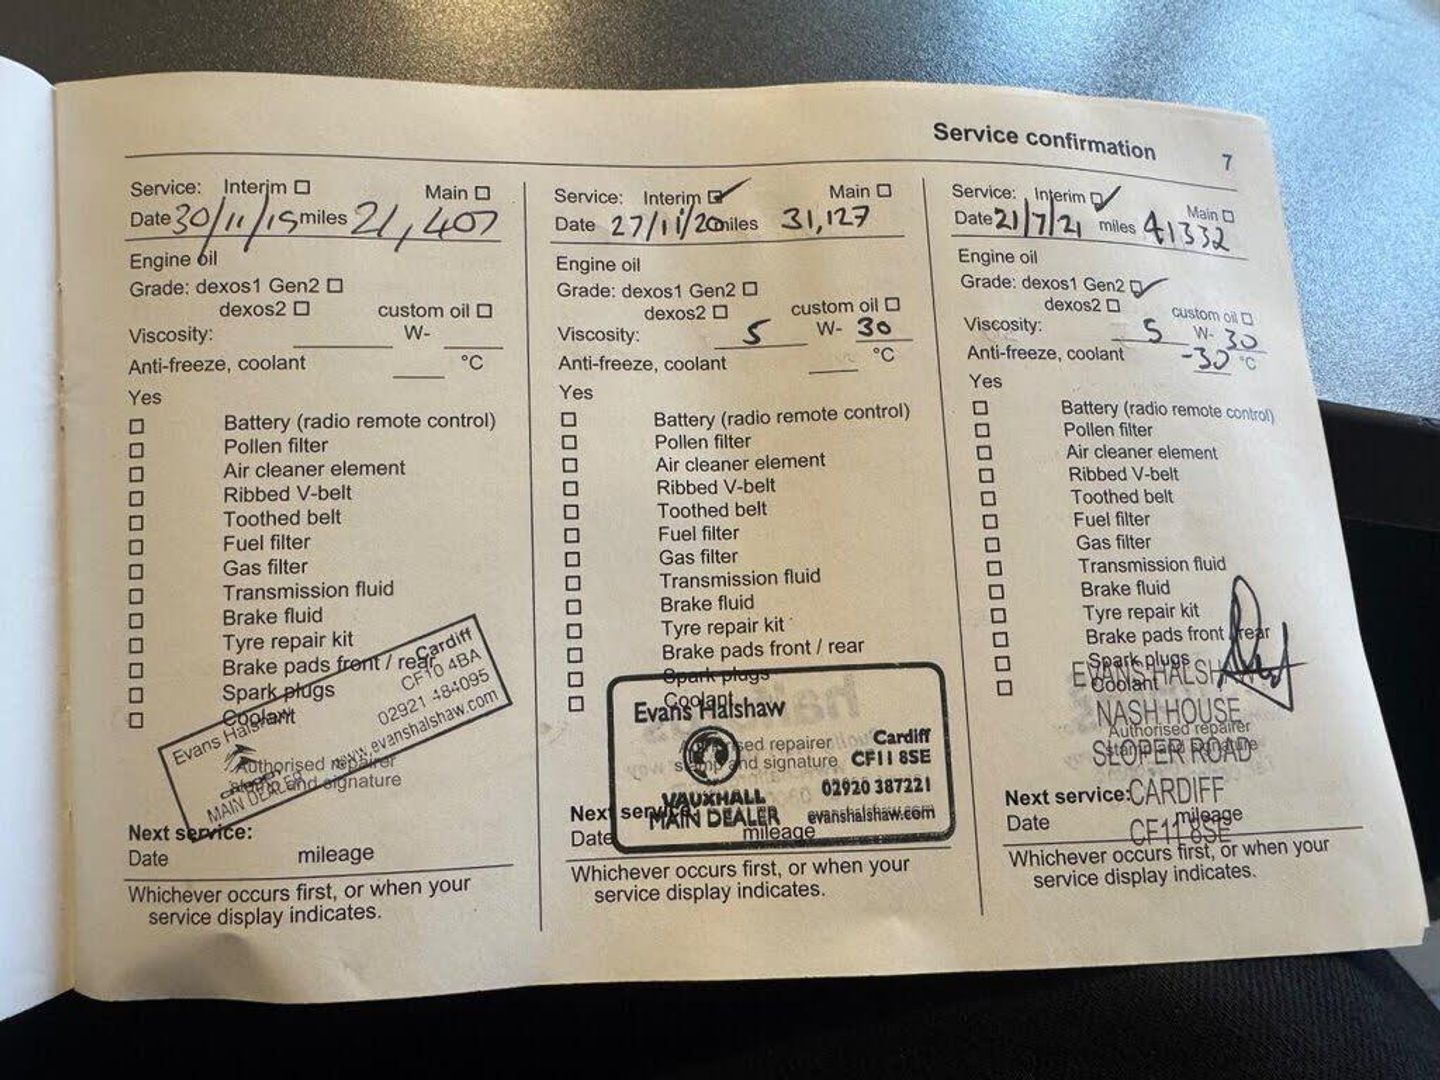 Service confirmation
7
Service: Interim Main
Date 30/11/19 miles 21,407
Engine oil
Grade: dexos1 Gen2
dexos2 custom oil
Viscosity: W-
Anti-freeze, coolant °C
Yes
Battery (radio remote control)
Pollen filter
Air cleaner element
Ribbed V-belt
Toothed belt
Fuel filter
Gas filter
Transmission fluid
Brake fluid
Tyre repair kit
Brake pads front / rear
Spark plugs
Coolant
Authorised repairer
stamp and signature
Evans Halshaw
Cardiff
CF10 4BA
02921 484095
www.evanshalshaw.com
MAIN DEALER
Next service:
Date mileage
Whichever occurs first, or when your
service display indicates.
Service: Interim Main
Date 27/11/20 miles 31,127
Engine oil
Grade: dexos1 Gen2
dexos2 custom oil
Viscosity: 5 W- 30
Anti-freeze, coolant °C
Yes
Battery (radio remote control)
Pollen filter
Air cleaner element
Ribbed V-belt
Toothed belt
Fuel filter
Gas filter
Transmission fluid
Brake fluid
Tyre repair kit
Brake pads front / rear
Spark plugs
Coolant
Authorised repairer
stamp and signature
Evans Halshaw
Cardiff
CF11 8SE
VAUXHALL
MAIN DEALER
02920 387221
evanshalshaw.com
Next service:
Date mileage
Whichever occurs first, or when your
service display indicates.
Service: Interim Main
Date 21/7/21 miles 41332
Engine oil
Grade: dexos1 Gen2
dexos2 custom oil
Viscosity: 5 W- 30
Anti-freeze, coolant -30 °C
Yes
Battery (radio remote control)
Pollen filter
Air cleaner element
Ribbed V-belt
Toothed belt
Fuel filter
Gas filter
Transmission fluid
Brake fluid
Tyre repair kit
Brake pads front / rear
Spark plugs
Coolant
Authorised repairer
stamp and signature
EVANS HALSHAW
NASH HOUSE
SLOPER ROAD
CARDIFF
CF11 8SE
Next service:
Date mileage
Whichever occurs first, or when your
service display indicates.